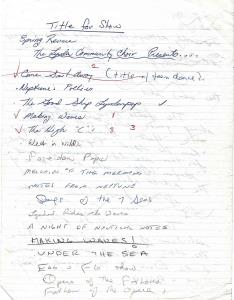 Title for Show
Spring Revue
The Lyndon Community Choir Presents....
2
Come Sail Away (title - / team dance).
Neptune's Follies
The Good Ship Lyndonpops
Making Waves 1
The High "C's" 3 3
Poseidon Pops
OF THE MERMAIDS
NOTES FROM NEPTUNE
of the 7 Seas
Rides the Waves
A NIGHT OF NAUTICAL NOTES
MAKING WAVES!
UNDER THE SEA
Ebb & Flo Show
Opera of the
of the Opera